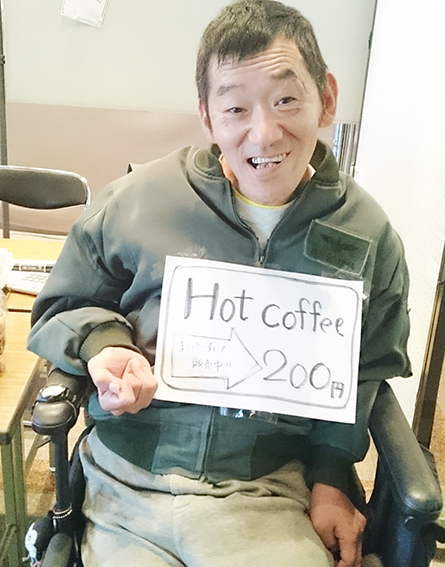 Hot coffee
販売中!!
200円